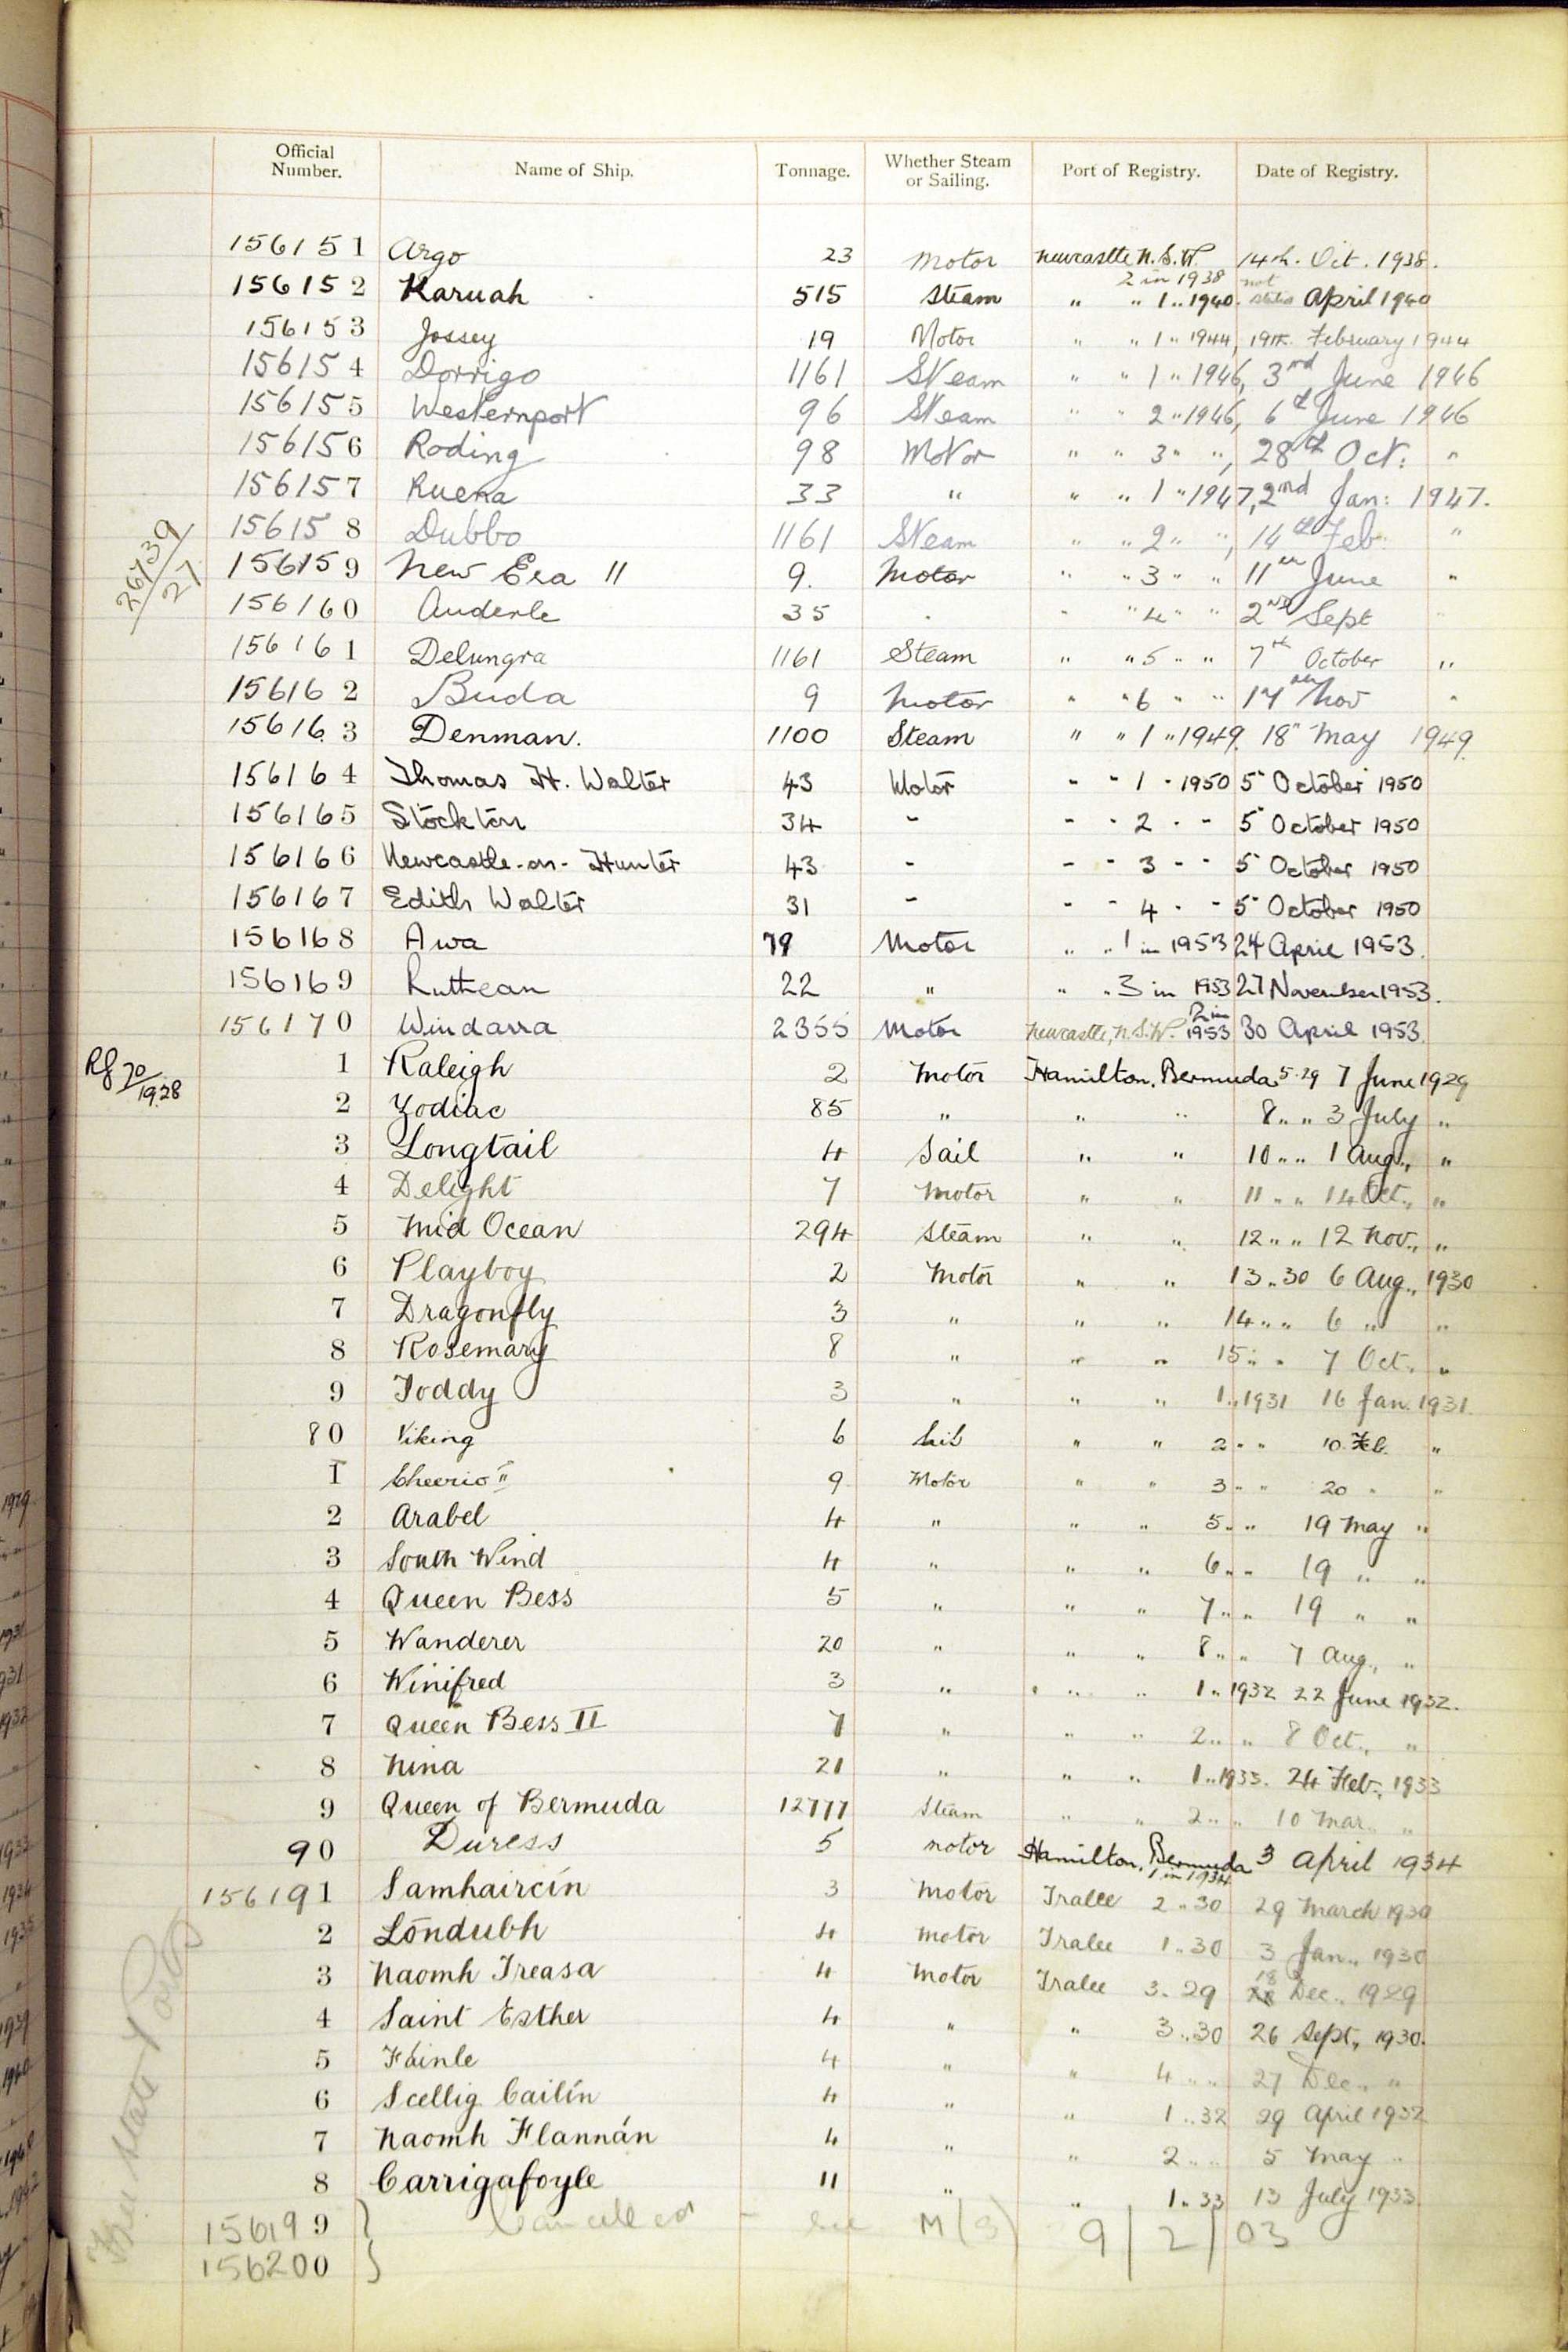 Official Number. Name of Ship. Tonnage. Whether Steam or Sailing. Port of Registry. Date of Registry.
156151 Argo 23 Motor Newcastle N.S.W. 2 in 1938 14th. Oct. 1938.
156152 Karuah 515 Steam " " 1 " 1940. not stated April 1940
156153 Jossey 19 Motor " " 1 " 1944, 19th. February 1944
156154 Dorrigo 1161 Steam " " 1 " 1946, 3rd June 1946
156155 Westernport 96 Steam " " 2 " 1946, 6th June 1946
156156 Roding 98 Motor " " 3 " ", 28th Oct: "
156157 Ruena 33 " " " 1 " 1947, 2nd Jan: 1947.
156158 Dubbo 1161 Steam " " 2 " ", 14th Feb "
26739/27
156159 New Era II 9. Motor " " 3 " " 11th June "
156160 Auderle 35 . " " 4 " " 2nd Sept "
156161 Delungra 1161 Steam " " 5 " " 7th October "
156162 Buda 9 Motor " " 6 " " 17th Nov "
156163 Denman. 1100 Steam " " 1 " 1949. 18" May 1949.
156164 Thomas H. Walter 43 Motor " " 1 " 1950 5" October 1950
156165 Stockton 34 " " " 2 " " 5" October 1950
156166 Newcastle-on-Hunter 43 " " " 3 " " 5" October 1950
156167 Edith Walter 31 " " " 4 " " 5" October 1950
156168 Awa 79 Motor " " 1 in 1953 24 April 1953.
156169 Ruthean 22 " " " 3 in 1953 27 November 1953.
156170 Windarra 2355 Motor Newcastle, N.S.W. 2 in 1953 30 April 1953.
Rf 70/1928
1 Raleigh 2 Motor Hamilton, Bermuda 5.29 7 June 1929
2 Zodiac 85 " " " 8 " " 3 July "
3 Longtail 4 Sail " " 10 " " 1 Aug., "
4 Delight 7 Motor " " 11 " " 14 Oct., "
5 Mid Ocean 294 Steam " " 12 " " 12 Nov., "
6 Playboy 2 Motor " " 13 " 30 6 Aug., 1930
7 Dragonfly 3 " " " 14 " " 6 " "
8 Rosemary 8 " " " 15 " " 7 Oct., "
9 Toddy 3 " " " 1 " 1931 16 Jan. 1931.
80 Viking 6 Sail " " 2 " " 10 Feb. "
1 Cheerio II 9 Motor " " 3 " " 20 " "
2 Arabel 4 " " " 5 " " 19 May "
3 South Wind 4 " " " 6 " " 19 " "
4 Queen Bess 5 " " " 7 " " 19 " "
5 Wanderer 20 " " " 8 " " 7 Aug., "
6 Winifred 3 " " " 1 " 1932 22 June 1932.
7 Queen Bess II 7 " " " 2 " " 8 Oct., "
8 Nina 21 " " " 1 " 1933. 24 Feb., 1933
9 Queen of Bermuda 12777 Steam " " 2 " " 10 Mar. "
90 Duress 5 Motor Hamilton, Bermuda 1 in 1934 3 April 1934
156191 Samhaircín 3 Motor Tralee 2 " 30 29 March 1930
2 Londubh 4 Motor Tralee 1 " 30 3 Jan., 1930
3 Naomh Treasa 4 Motor Tralee 3 " 29 18 Dec., 1929
4 Saint Esther 4 " " 3 " 30 26 Sept., 1930.
5 Fáinle 4 " " 4 " " 27 Dec., "
6 Scellig Cailín 4 " " 1 " 32 29 April 1932
7 Naomh Flannán 4 " " 2 " " 5 May "
8 Carrigafoyle 11 " " 1 " 33 13 July 1933.
156199 } Cancelled - see M(S) 9/2/03
156200 }
Free State Ports